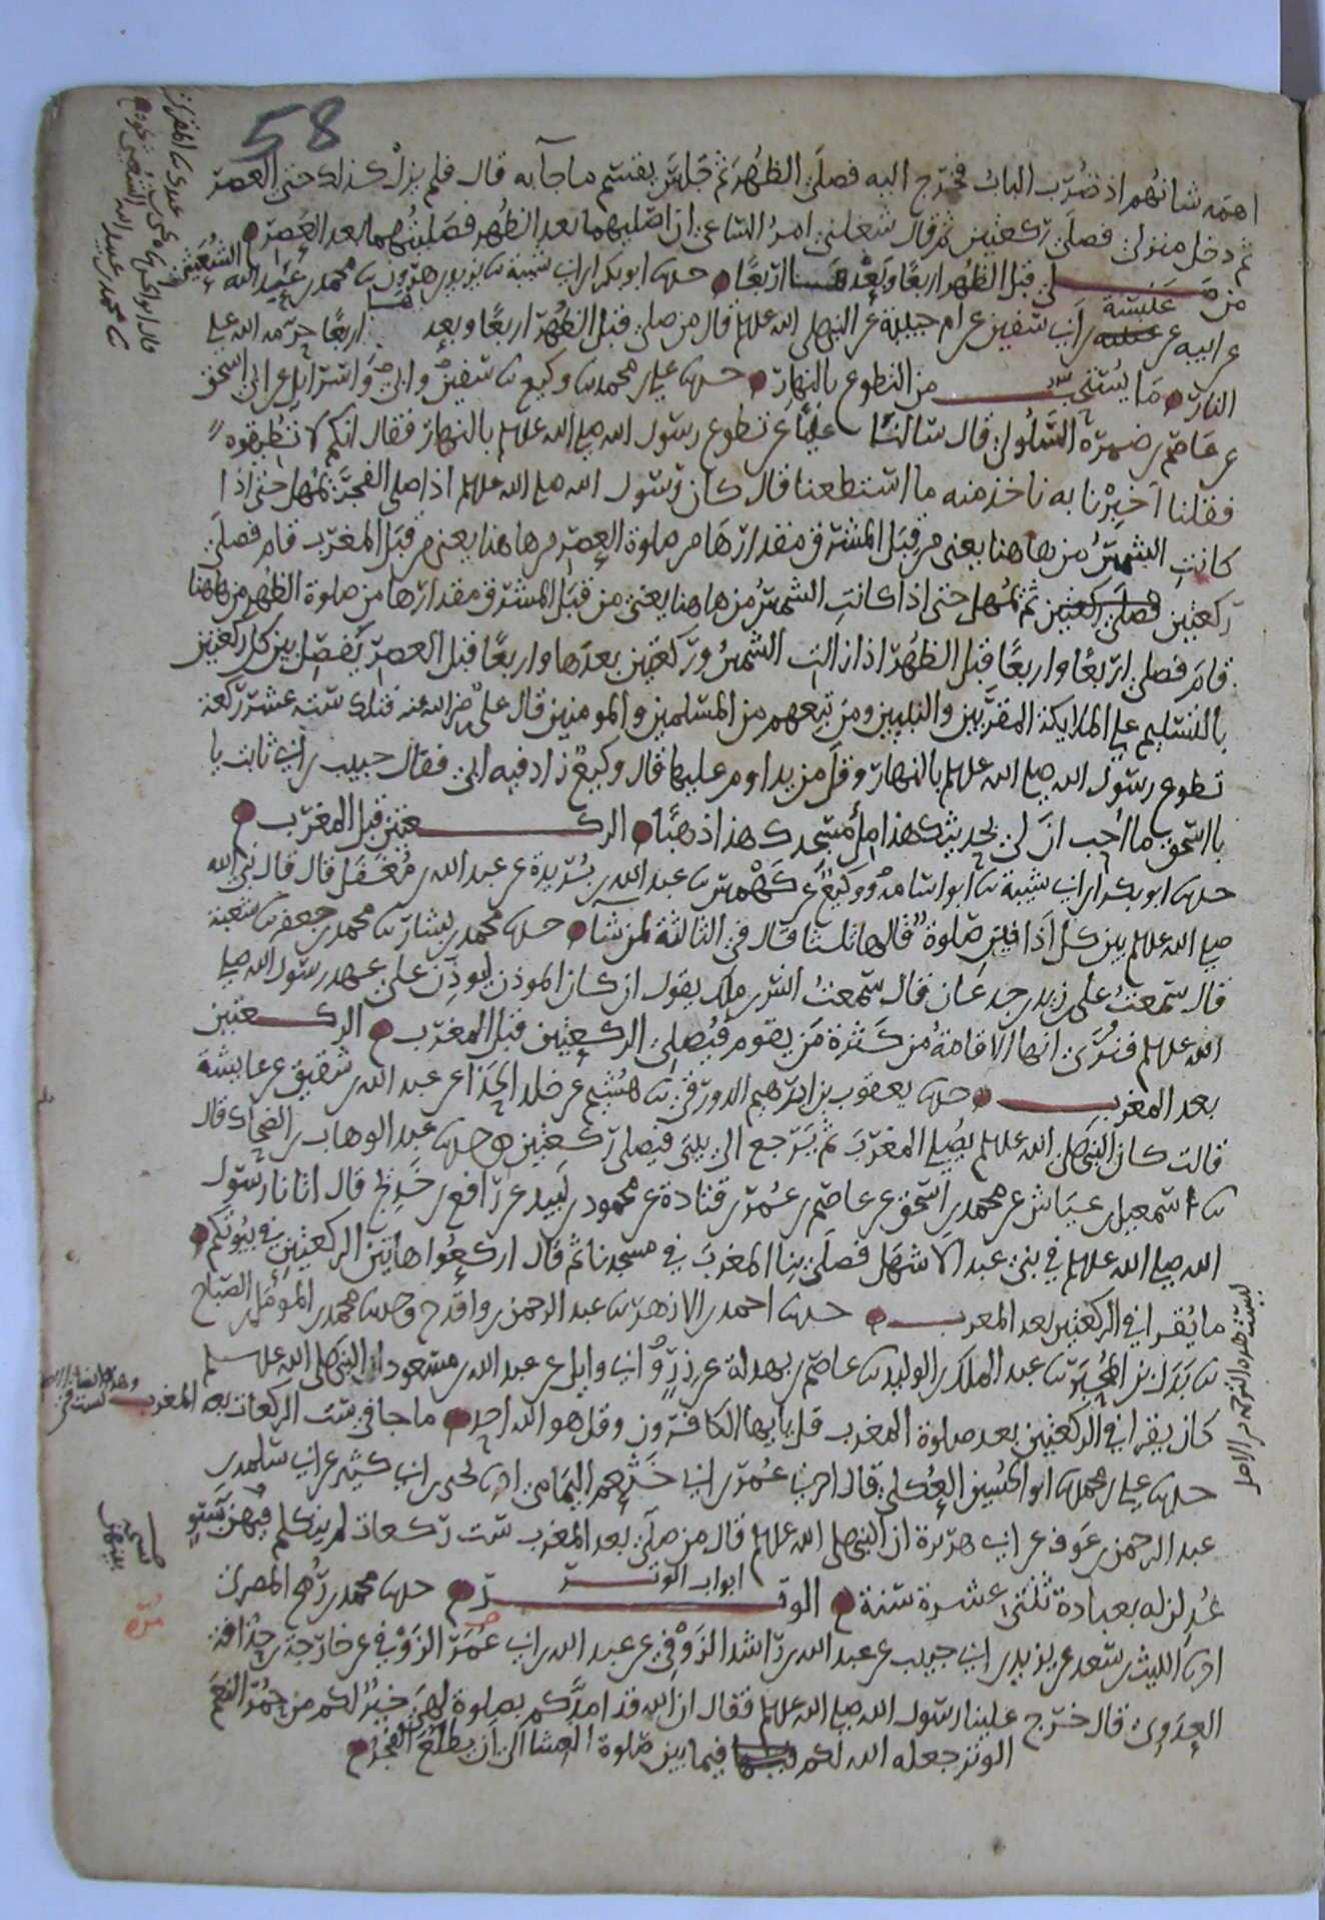 58
اهمه شانهم اذ ضرب الباب فخرج اليه فصلى الظهر ثم جلس يقسم ما جآ به قال فلم يزل كذلك حتى العصر
ثم دخل منزلى فصلى ركعتين ثم قال شغلنى امر الساعى ان اصليهما بعد الظهر فصليتهما بعد العصر
من صلى قبل الظهر اربعا وبعدها اربعا حدثنا ابو بكر بن ابى شيبة ثنا يزيد بن هرون ثنا محمد بن عبد الله الشعيثى
عن ابيه عن عنبسة بن ابى سفين عن ام حبيبة عن النبى صلى الله عليه وسلم قال من صلى قبل الظهر اربعا وبعدها اربعا حرمه الله على
النار ما يستحب من التطوع بالنهار حدثنا على بن محمد ثنا وكيع ثنا سفين وابى واسرايل عن ابى اسحق
عن عاصم بن ضمرة السلولى قال سالنا عليا عن تطوع رسول الله صلى الله عليه وسلم بالنهار فقال انكم لا تطيقوه
فقلنا اخبرنا به ناخذ منه ما استطعنا قال كان رسول الله صلى الله عليه وسلم اذا صلى الفجر يمهل حتى اذا
كانت الشمس من هاهنا يعنى من قبل المشرق مقدارها من صلوة العصر من هاهنا يعنى من قبل المغرب قام فصلى
ركعتين فصلى ركعتين ثم يمهل حتى اذا كانت الشمس من هاهنا يعنى من قبل المشرق مقدارها من صلوة الظهر من هاهنا
قام فصلى اربعا واربعا قبل الظهر اذا زالت الشمس وركعتين بعدها واربعا قبل العصر يفصل بين كل ركعتين
بالتسليم على الملايكة المقربين والنبيين ومن تبعهم من المسلمين والمومنين قال على رضى الله عنه فتلك ستة عشر ركعة
تطوع رسول الله صلى الله عليه وسلم بالنهار وقل من يداوم عليها قال وكيع زاد فيه ابى فقال حبيب بن ابى ثابت يا
با اسحق ما احب ان لى بحديثك هذا ملأ مسجدك هذا ذهبا الركعتين قبل المغرب
حدثنا ابو بكر بن ابى شيبة ثنا ابو اسامة ووكيع عن كهمس ثنا عبد الله بن بريدة عن عبد الله بن مغفل قال قال نبى الله
صلى الله عليه وسلم بين كل اذانين صلوة قالها ثلثا قال فى الثالثة لمن شآ حدثنا محمد بن بشار ثنا محمد بن جعفر ثنا شعبة
قال سمعت على بن زيد بن جدعان قال سمعت انس بن ملك يقول ان كان الموذن ليوذن على عهد رسول الله صلى
الله عليه وسلم فنرى انها الاقامة من كثرة من يقوم فيصلى الركعتين قبل المغرب الركعتين
بعد المغرب حدثنا يعقوب بن ابرهيم الدورقى ثنا هشيم عن خلد الحذا عن عبد الله بن شقيق عن عايشة
قالت كان النبى صلى الله عليه وسلم يصلى المغرب ثم يرجع الى بيتى فيصلى ركعتين حدثنا عبد الوهاب بن الضحاك قال
ثنا اسمعيل بن عياش عن محمد بن اسحق عن عاصم بن عمر بن قتادة عن محمود بن لبيد عن رافع بن خديج قال اتانا رسول
الله صلى الله عليه وسلم فى بنى عبد الاشهل فصلى بنا المغرب فى مسجدنا ثم قال اركعوا هاتين الركعتين فى بيوتكم
ما يقرا فى الركعتين بعد المغرب حدثنا احمد بن الازهر ثنا عبد الرحمن بن واقد ح وحدثنا محمد بن المومل بن الصباح
ثنا بدل بن المحبر ثنا عبد الملك بن الوليد ثنا عاصم بن بهدلة عن زر وابى وايل عن عبد الله بن مسعود ان النبى صلى الله عليه وسلم
كان يقرا فى الركعتين بعد صلوة المغرب قل يايها الكافرون وقل هو الله احد ما جا فى ست الركعات بعد المغرب
حدثنا على بن محمد ثنا ابو الحسين العكلى قال اخبرنى عمر بن ابى خثعم اليمامى انا يحيى بن ابى كثير عن ابى سلمة بن
عبد الرحمن بن عوف عن ابى هريرة ان النبى صلى الله عليه وسلم قال من صلى بعد المغرب ست ركعات لم يتكلم بينهن بسو
عدلن له بعبادة ثنتى عشرة سنة ابواب الوتر الوتر حدثنا محمد بن رمح المصرى
انا الليث بن سعد عن يزيد بن ابى حبيب عن عبد الله بن راشد الزوفى عن عبد الله بن ابى مرة الزوفى عن خارجة بن حذافة
العدوى قال خرج علينا رسول الله صلى الله عليه وسلم فقال ان الله قد امدكم بصلوة لهى خير لكم من حمر النعم
الوتر جعله الله لكم فيما بين صلوة العشا الى ان يطلع الفجر
ليست هذه الترجمة فى الاصل
بينهن
مرة